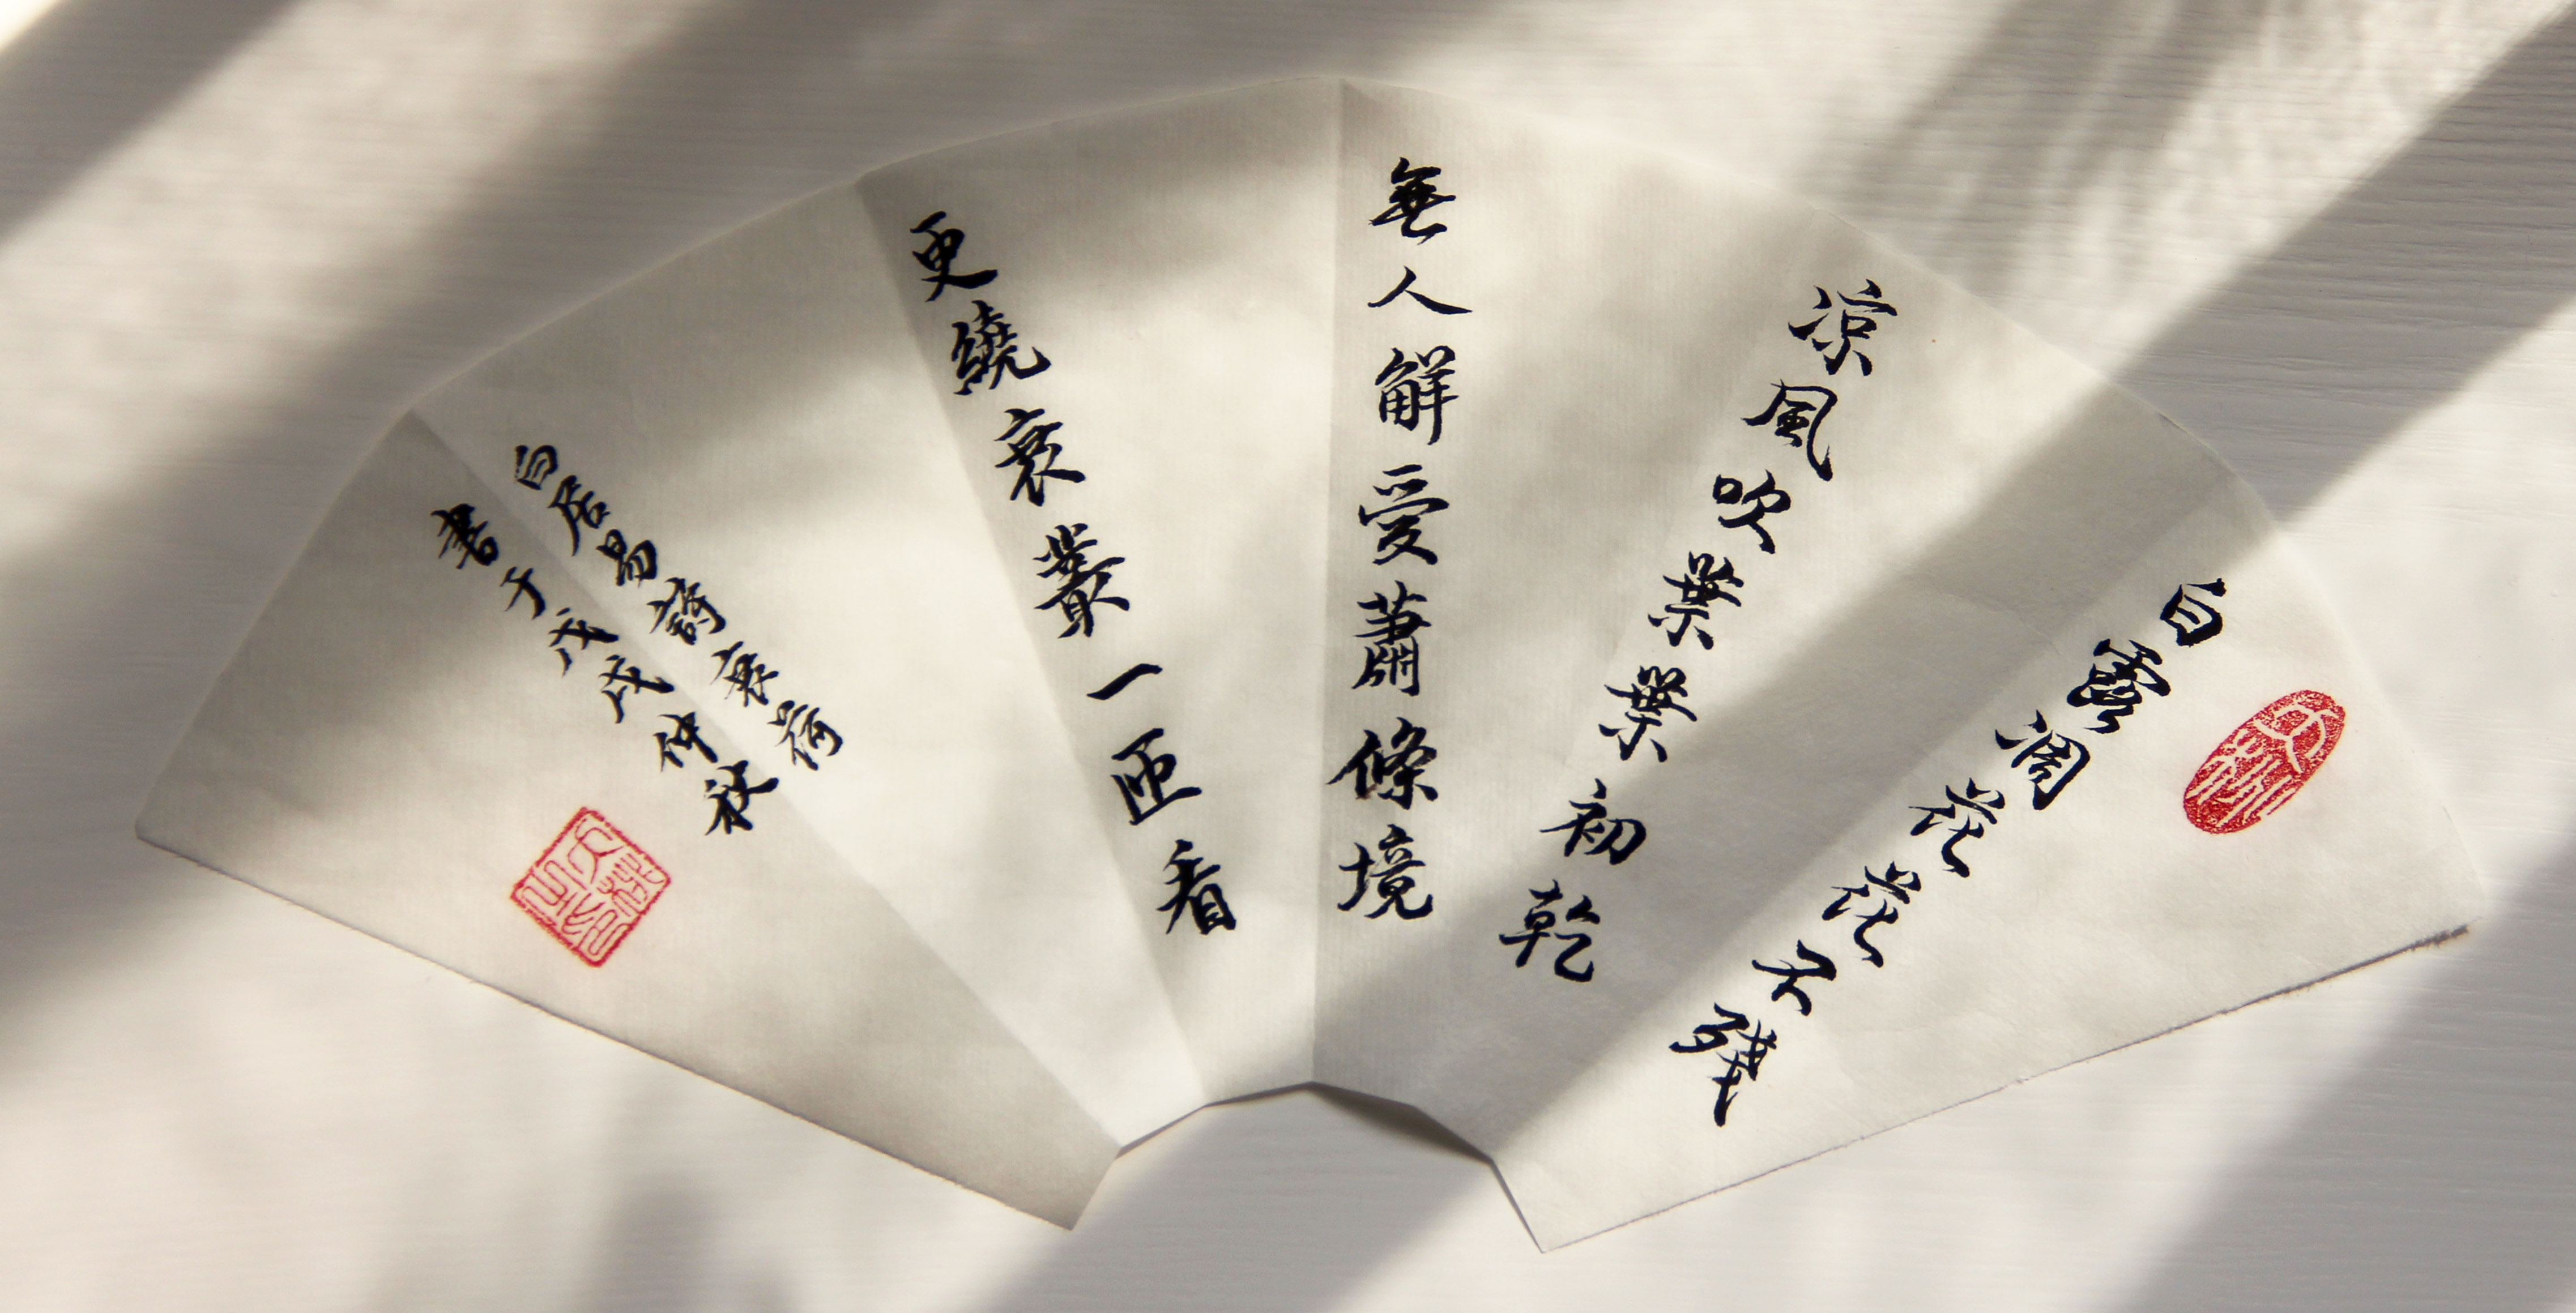 白露凋花花不殘
凉風吹葉葉初乾
無人解愛蕭條境
更繞衰叢一匝看
白居易詩衰荷
書于戊戌仲秋